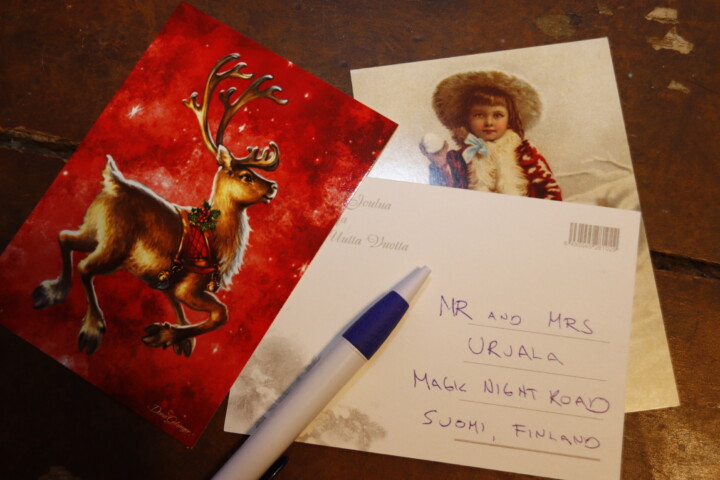 Joulua
Uutta Vuotta
MR AND MRS
URJALA
MAGIC NIGHT ROAD
SUOMI, FINLAND